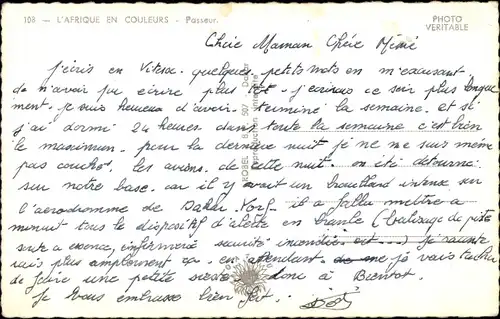 108 — L'AFRIQUE EN COULEURS - Passeur.
PHOTO
VERITABLE
Chère Maman Chère Mimi
J'écris en Vitesse quelques petits mots en m'excusant
de n'avoir pu écrire plus tôt. J'écrirai ce soir plus longue
ment. Je suis heureux d'avoir terminé la semaine. et si
j'ai dormi 24 heures dans toute la semaine c'est bien
le maximum. pour la dernière nuit je ne me suis même
pas couché. les avions de cette nuit ont été detourné
sur notre base. car il y avait un brouillard intense sur
l'aerodromme de Dakar Yoff. il a fallu mettre a
minuit tous le dispositif d'alerte en branle (balisage de piste
essence, infirmerie securité incendie Je raconte
rais plus amplement ça. en attendant je vais tacher
de faire une petite sieste donc à Bientot.
Je Vous embrasse bien fort.